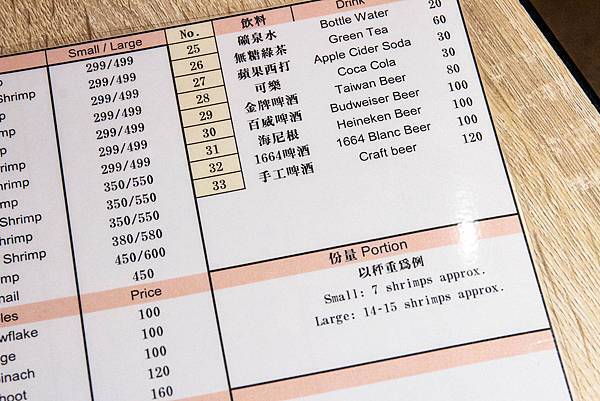 Small / Large
299/499
Shrimp 299/499
299/499
299/499
299/499
299/499
299/499
350/550
Shrimp 350/550
350/550
Shrimp 380/580
450/600
450
Price
100
100
120
160
No. 飲料 Drink
25 礦泉水 Bottle Water 20
26 無糖綠茶 Green Tea 60
27 蘋果西打 Apple Cider Soda 30
28 可樂 Coca Cola 30
29 金牌啤酒 Taiwan Beer 80
30 百威啤酒 Budweiser Beer 100
31 海尼根 Heineken Beer 100
32 1664啤酒 1664 Blanc Beer 100
33 手工啤酒 Craft beer 120
份量 Portion
以秤重為例
Small: 7 shrimps approx.
Large: 14-15 shrimps approx.